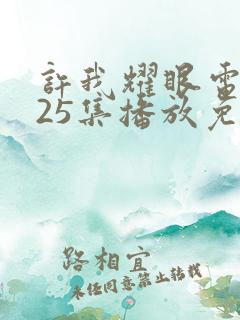 許我耀眼電
25集播放免
路相宜
未经同意禁止转载